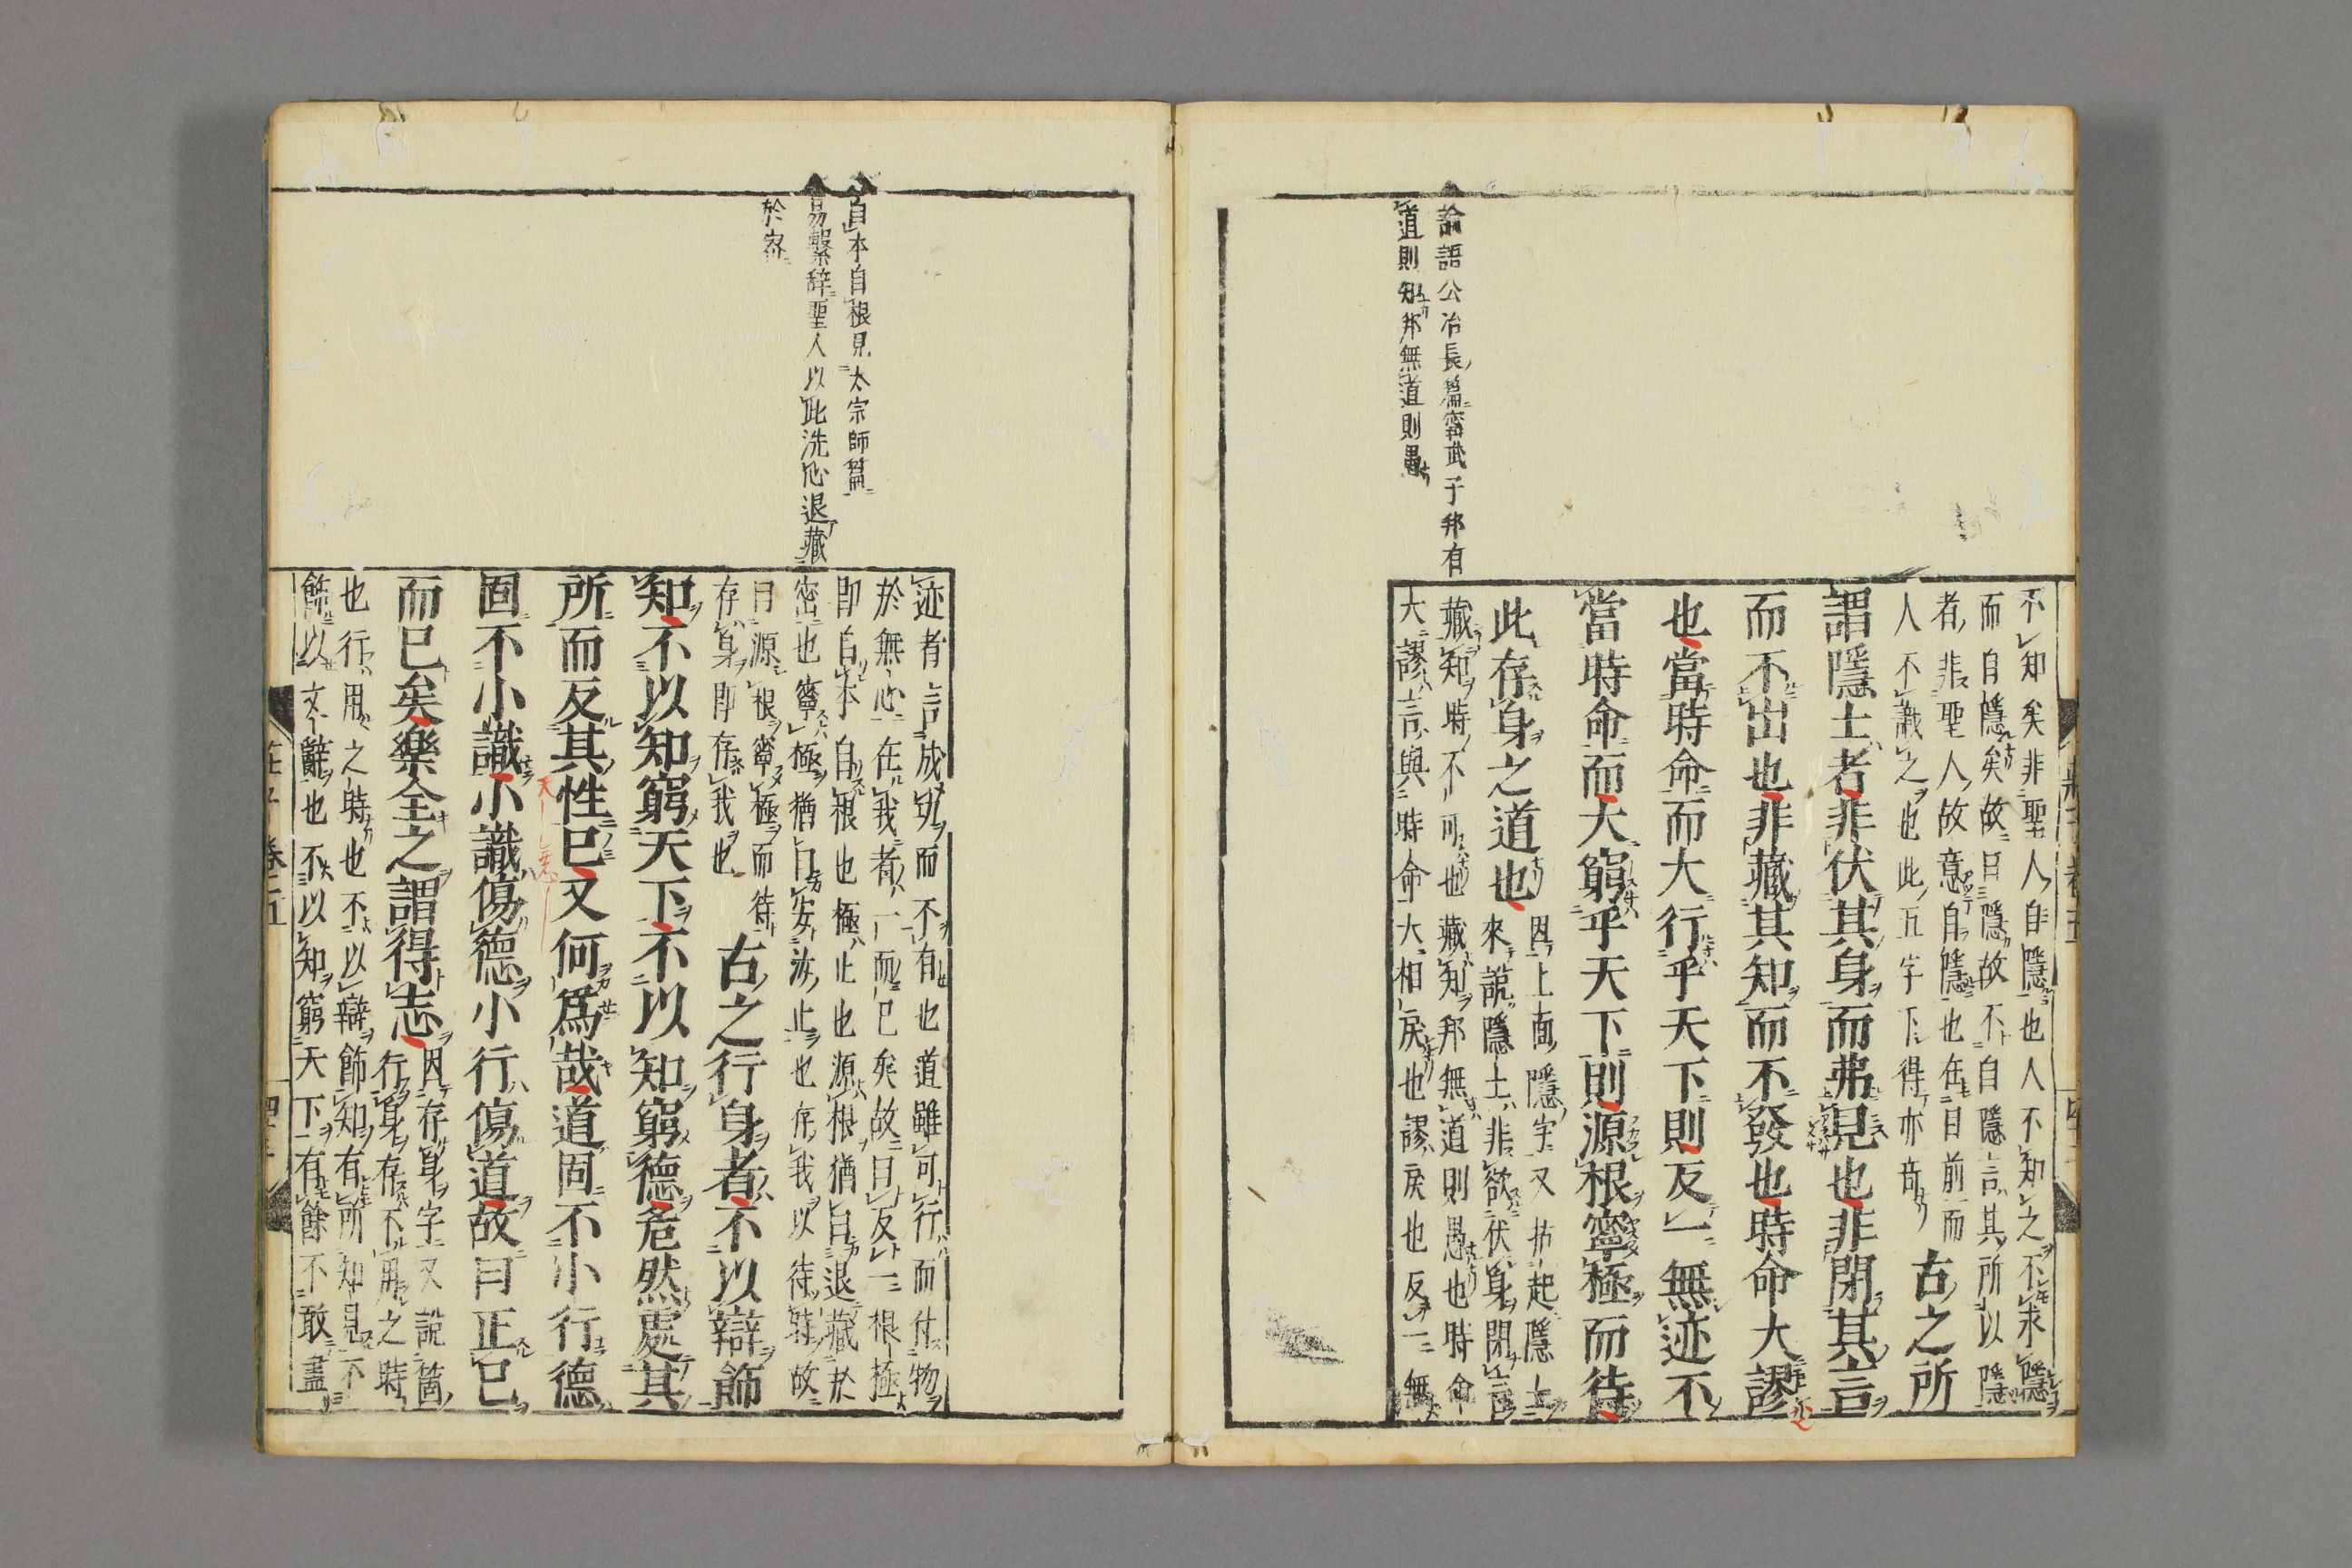 論語公冶長篇甯武子邦有
道則知邦無道則愚
不知矣非聖人自隱也人不知之不求隱
而自隱矣故曰隱故不自隱言其所以隱
者非聖人故意自隱也在目前而
人不識之也此五字下得亦奇
古之所
謂隱士者非伏其身而弗見也非閉其言
而不出也非藏其知而不發也時命大謬
也當時命而大行乎天下則反一無迹不
當時命而大窮乎天下則深根寧極而待
此存身之道也
因上面隱字又抅起隱士
來說隱士非欲伏身閉言
藏知時不可也藏知邦無道則愚也時命
大謬言與時命大相戾也謬戾也反一無
自本自根見太宗師篇
易繫辞聖人以此洗心退藏
於密
迹者言成功而不有也道雖可行而付物
於無心在我者一而已矣故曰反一根極
即自本自根也極止也深根猶曰退藏於
密也寧極猶曰安汝止也存我以待時故
曰深根寧極而待
存身即存我也
古之行身者不以辯飾
知不以知窮天下不以知窮德危然處其
所而反其性已又何為哉道固不小行德
固不小識小識傷德小行傷道故曰正己
而已矣樂全之謂得志
因存身字又說箇
行身存不用之時
也行用之時也不以辯飾知有所知見不
飾以文辭也不以知窮天下有餘不敢盡
莊子卷五